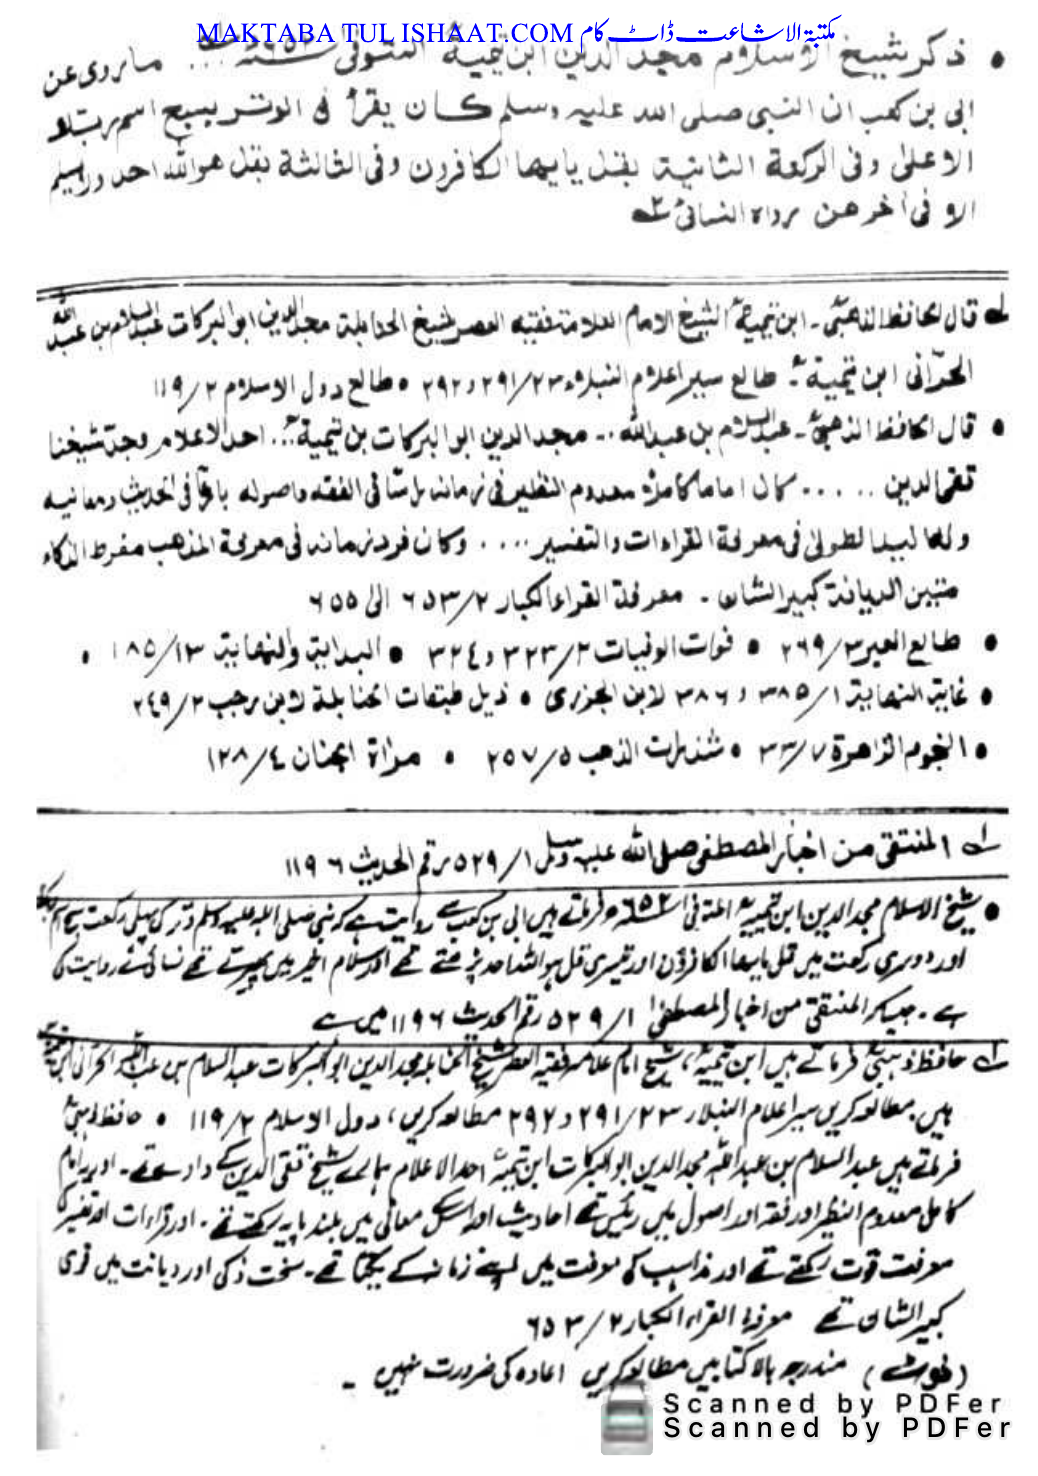 MAKTABA TUL ISHAAT.COM مکتبۃ الاشاعت ڈاٹ کام
• ذکر شیخ الاسلام مجد الدین ابن تیمیۃؒ المتوفی ۶۵۲ھ ... ما روی عن
ابی بن کعب ان النبی صلی اللہ علیہ وسلم کان یقرأ فی الوتر بسبح اسم ربك
الاعلیٰ وفی الرکعة الثانیة بقل یایها الکافرون وفی الثالثة بقل هو الله احد ولا یسلم
الا فی اٰخر هن رواہ النسائیؒ
لہ قال الحافظ الذهبیؒ۔ ابن تیمیةؒ الشیخ الامام العلامة فقیه العصر شیخ الحنابلة مجد الدین ابو البرکات عبد السلام بن عبد اللہ
الحرّانی ابن تیمیةؒ۔ طالع سیر اعلام النبلاء ۲۳/۲۹۱ و ۲۹۲ • طالع دول الاسلام ۲/۱۱۹
• قال الحافظ الذهبیؒ۔ عبد السلام بن عبد اللہ .. مجد الدین ابو البرکات بن تیمیةؒ... احد الاعلام وجد شیخنا
تقی الدین ..... کان اماما کاملا معدوم النظیر فی زمانه رأسا فی الفقه واصوله بارعا فی الحدیث ومعانیه
وله الید الطولیٰ فی معرفة القراءات والتفسیر .... وکان فرد زمانه فی معرفة المذهب مفرط الذکاء
متین الدیانة کبیر الشان ۔ معرفة القراء الکبار ۲/۶۵۳ الیٰ ۶۵۵
• طالع العبر ۳/۲۶۹ • فوات الوفیات ۲/۳۲۳ و ۳۲۴ • البدایة والنهایة ۱۳/۱۸۵ •
• غایة النهایة ۱/۳۸۵ و ۳۸۶ لابن الجزری • ذیل طبقات الحنابلة لابن رجب ۲/۲۴۹
• النجوم الزاهرة ۷/۳۳ • شذرات الذهب ۵/۲۵۷ • مرأة الجنان ۴/۱۲۸
لہ المنتقی من اخبار المصطفی صلی اللہ علیہ وسلم ۱/۵۲۹ رقم الحدیث ۱۱۹۶
• شیخ الاسلام مجد الدین ابن تیمیہؒ المتوفی ۶۵۲ھ فرماتے ہیں ابی بن کعب سے روایت ہے کہ نبی صلی اللہ علیہ وسلم وتر کی پہلی رکعت سبح اسم
اور دوسری رکعت میں قل یایھا الکافرون اور تیسری قل ہو اللہ احد پڑھتے تھے اور سلام اخیر میں پھیرتے تھے نسائی نے روایت کی
ہے۔ جیسا کہ المنتقی من اخبار المصطفی ۱/۵۲۹ رقم الحدیث ۱۱۹۶ میں ہے
لہ حافظ ذہبیؒ فرماتے ہیں ابن تیمیہؒ، شیخ امام علامہ فقیہ العصر شیخ الحنابلہ مجد الدین ابو البرکات عبد السلام بن عبد اللہ الحرانی ابن تیمیہ
ہیں۔ مطالعہ کریں سیر اعلام النبلاء ۲۳/۲۹۱ و ۲۹۲ مطالعہ کریں، دول الاسلام ۲/۱۱۹ • حافظ ذہبیؒ
فرماتے ہیں عبد السلام بن عبد اللہ مجد الدین ابو البرکات ابن تیمیہؒ احد الاعلام ہمارے شیخ تقی الدین کے دادا تھے۔ اور یہ امام
کامل معدوم النظیر اور فقہ اور اصول میں رئیس تھے احادیث اور اسکی معانی میں بلند پایہ رکھتے تھے۔ اور قراءات اور تفسیر کی
معرفت قوت رکھتے تھے اور مذاہب کی معرفت میں اپنے زمانہ کے یکتا تھے۔ سخت ذکی اور دیانت میں قوی
کبیر الشان تھے معرفۃ القراء الکبار ۲/۶۵۳
(نوٹ) مندرجہ بالا کتابیں مطالعہ کریں اعادہ کی ضرورت نہیں ۔
Scanned by PDFer
Scanned by PDFer